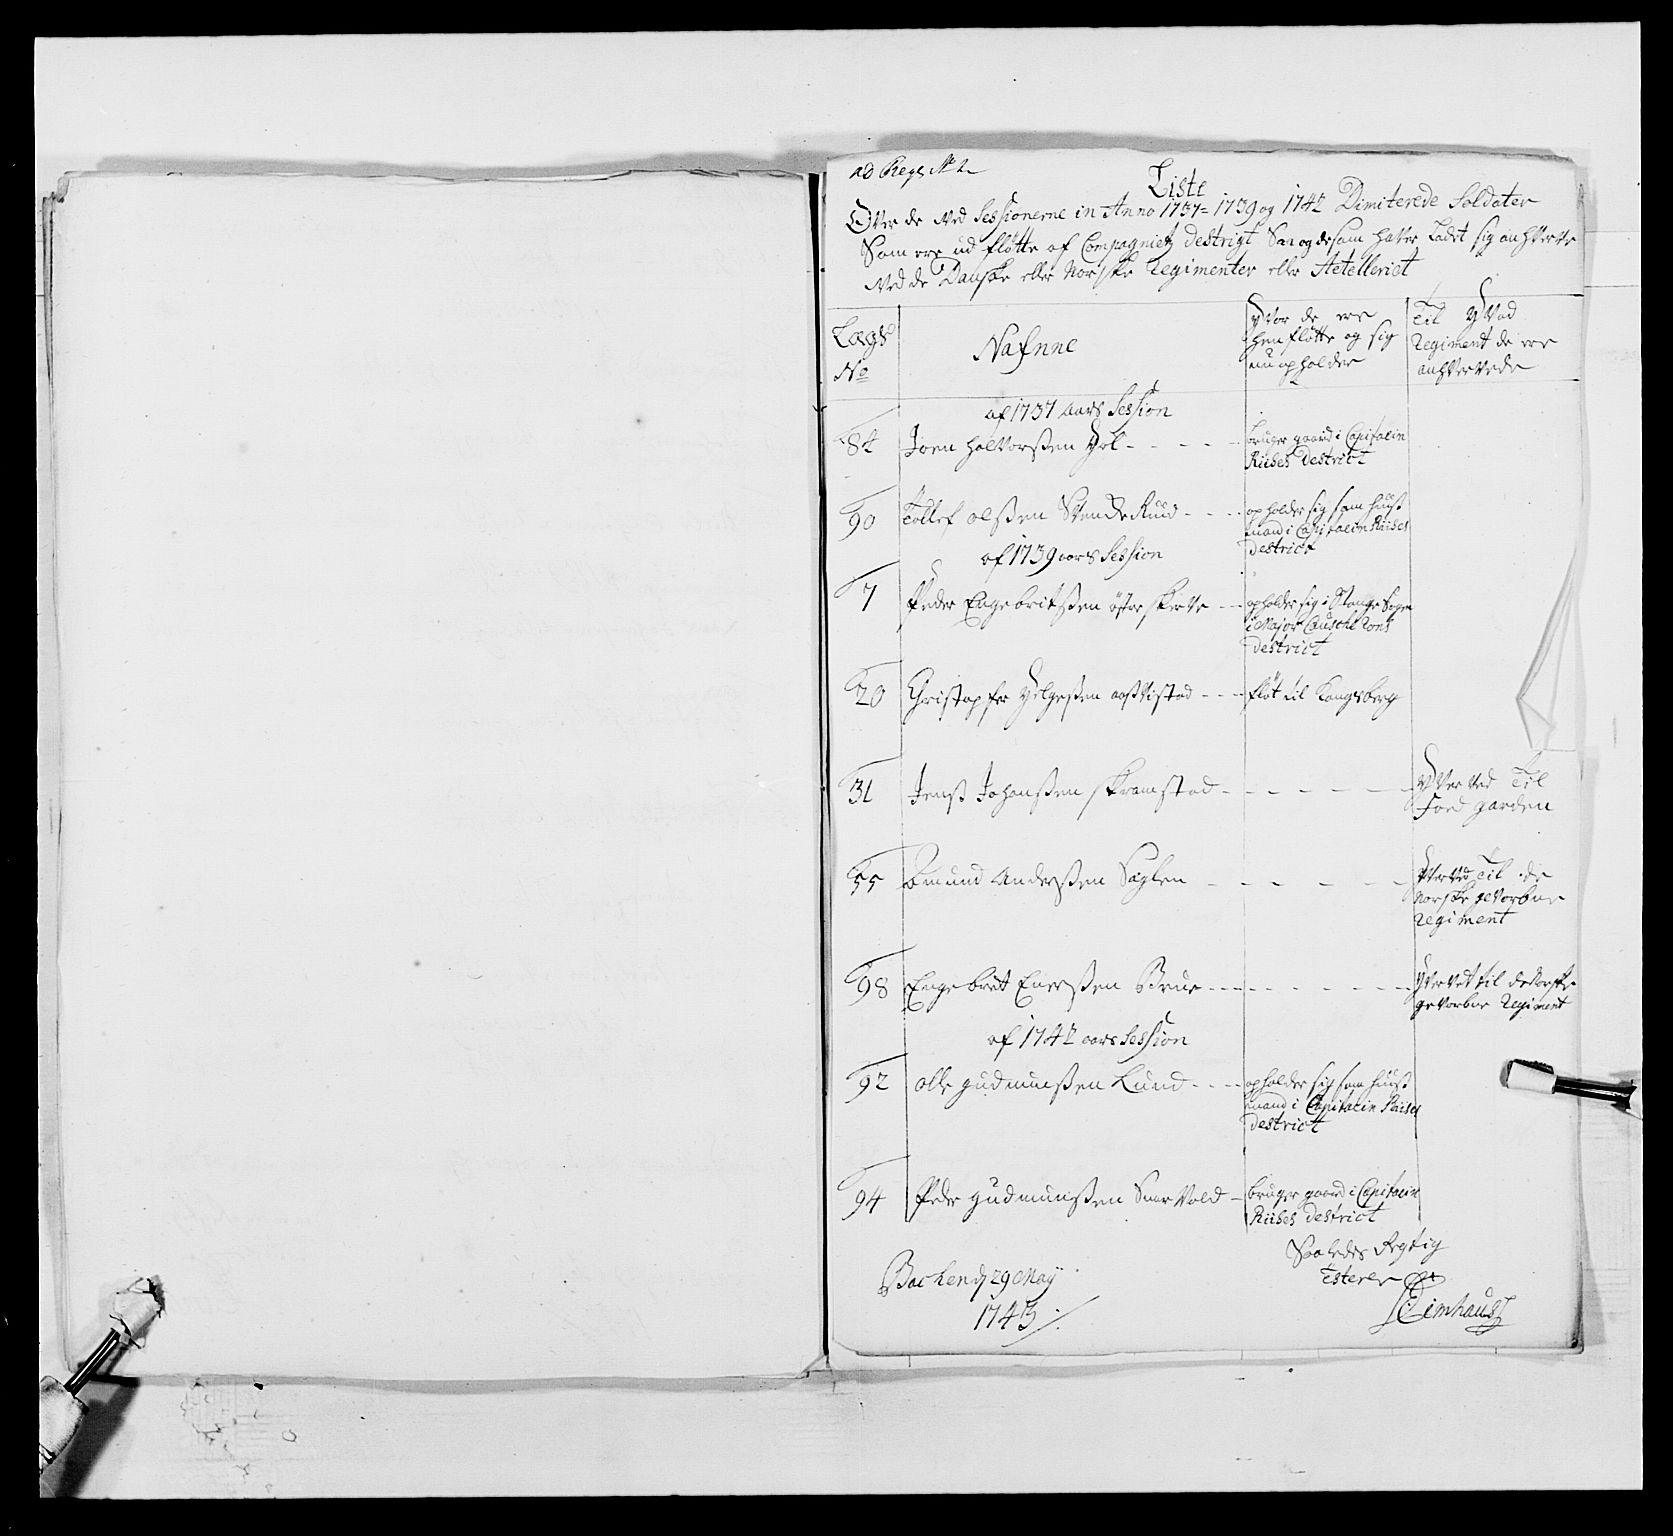 Liste
Over de ved Sessionerne in Anno 1737= 1739 og 1742 Dimiterede Soldater
Som ere ud fløtte af Compagniets Destrigt Saa og de som haver Ladet sig anhverve
ved de Danske eller Norske Regimenter eller Aetelleriet
Lægs No
Nafnne
Hvor de ere henfløtte og sig nu opholder
Til Hvad Regiment de ere anhvervede
af 1737 aars Session
84 Joen Halvorßen Hol - - - - - bruger gaard i Capitain Riises Destrict
90 Tollef olßen StendeRuud - - - - opholder sig som huuß mand i Capitain Riises Destrict
af 1739 aars Session
7 Peder Engebritßen øster skerve - - - opholder sig i Stange Sogn i Major Destrict
20 Christopfer Helgeßen - - - fløt til Kongsberg
31 Jenß Johanßen skramstad - - - - - - Hverved Til Foed garden
55 Amund Anderßen Saglen - - - - - - Hverved Til de Norske gevorbne Regiment
98 Engebret Enerßen Brue - - - - - - Hvervet til de Norske gevorbne Regiment
af 1742 aars Session
92 olle gudmunßen Lund - - - - opholder sig som huuß mand i Capitain Riises Destrict
94 Peder gudmunßen SnarVold - bruger gaard i Capitain Riises Destrict
Saaledes Regtig
Testerer
Backen d 29 May
1743
Eimhaus